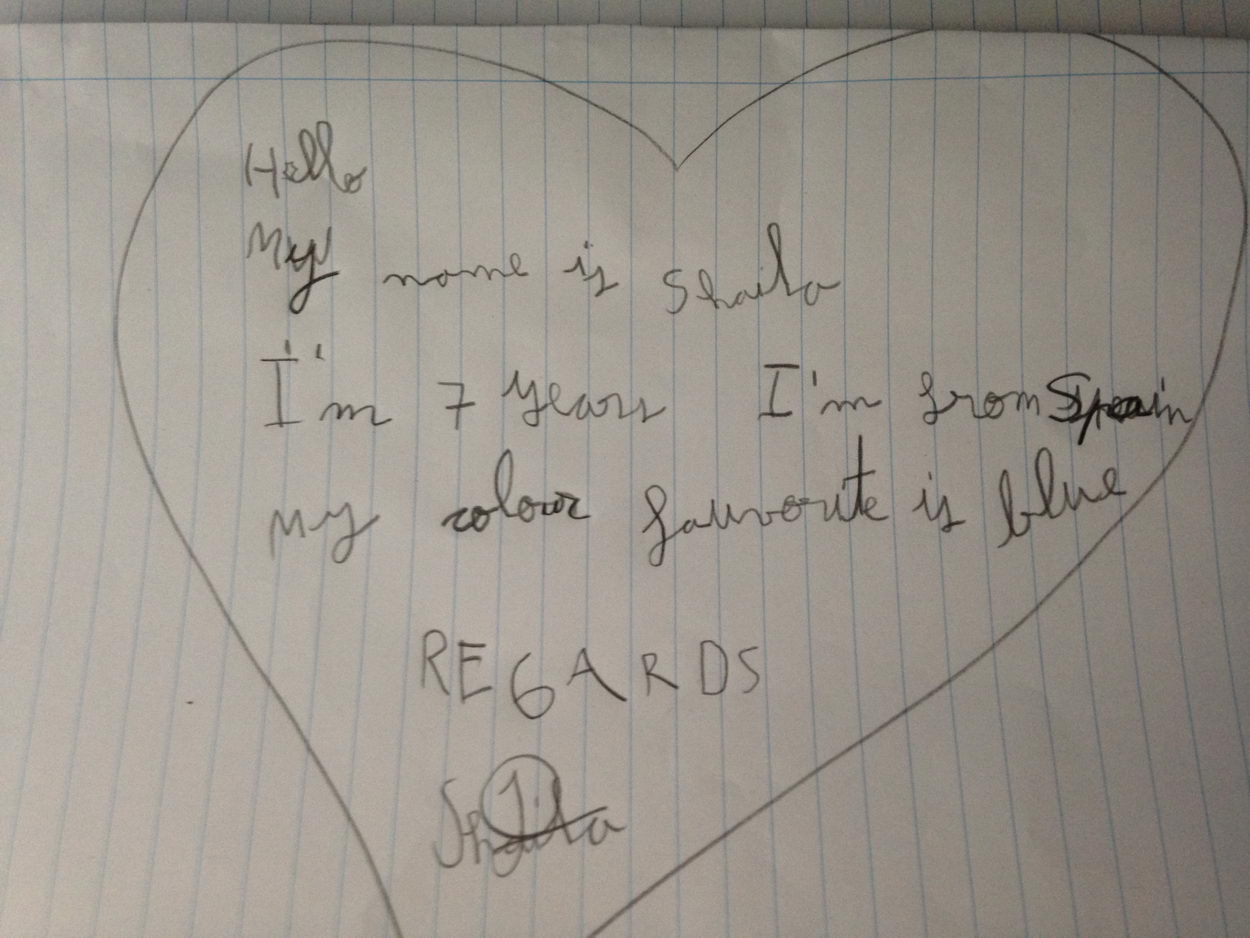 Hello
My name is Shaila
I'm 7 years I'm from Spain
my colour fauvorite is blue
REGARDS
Shaila